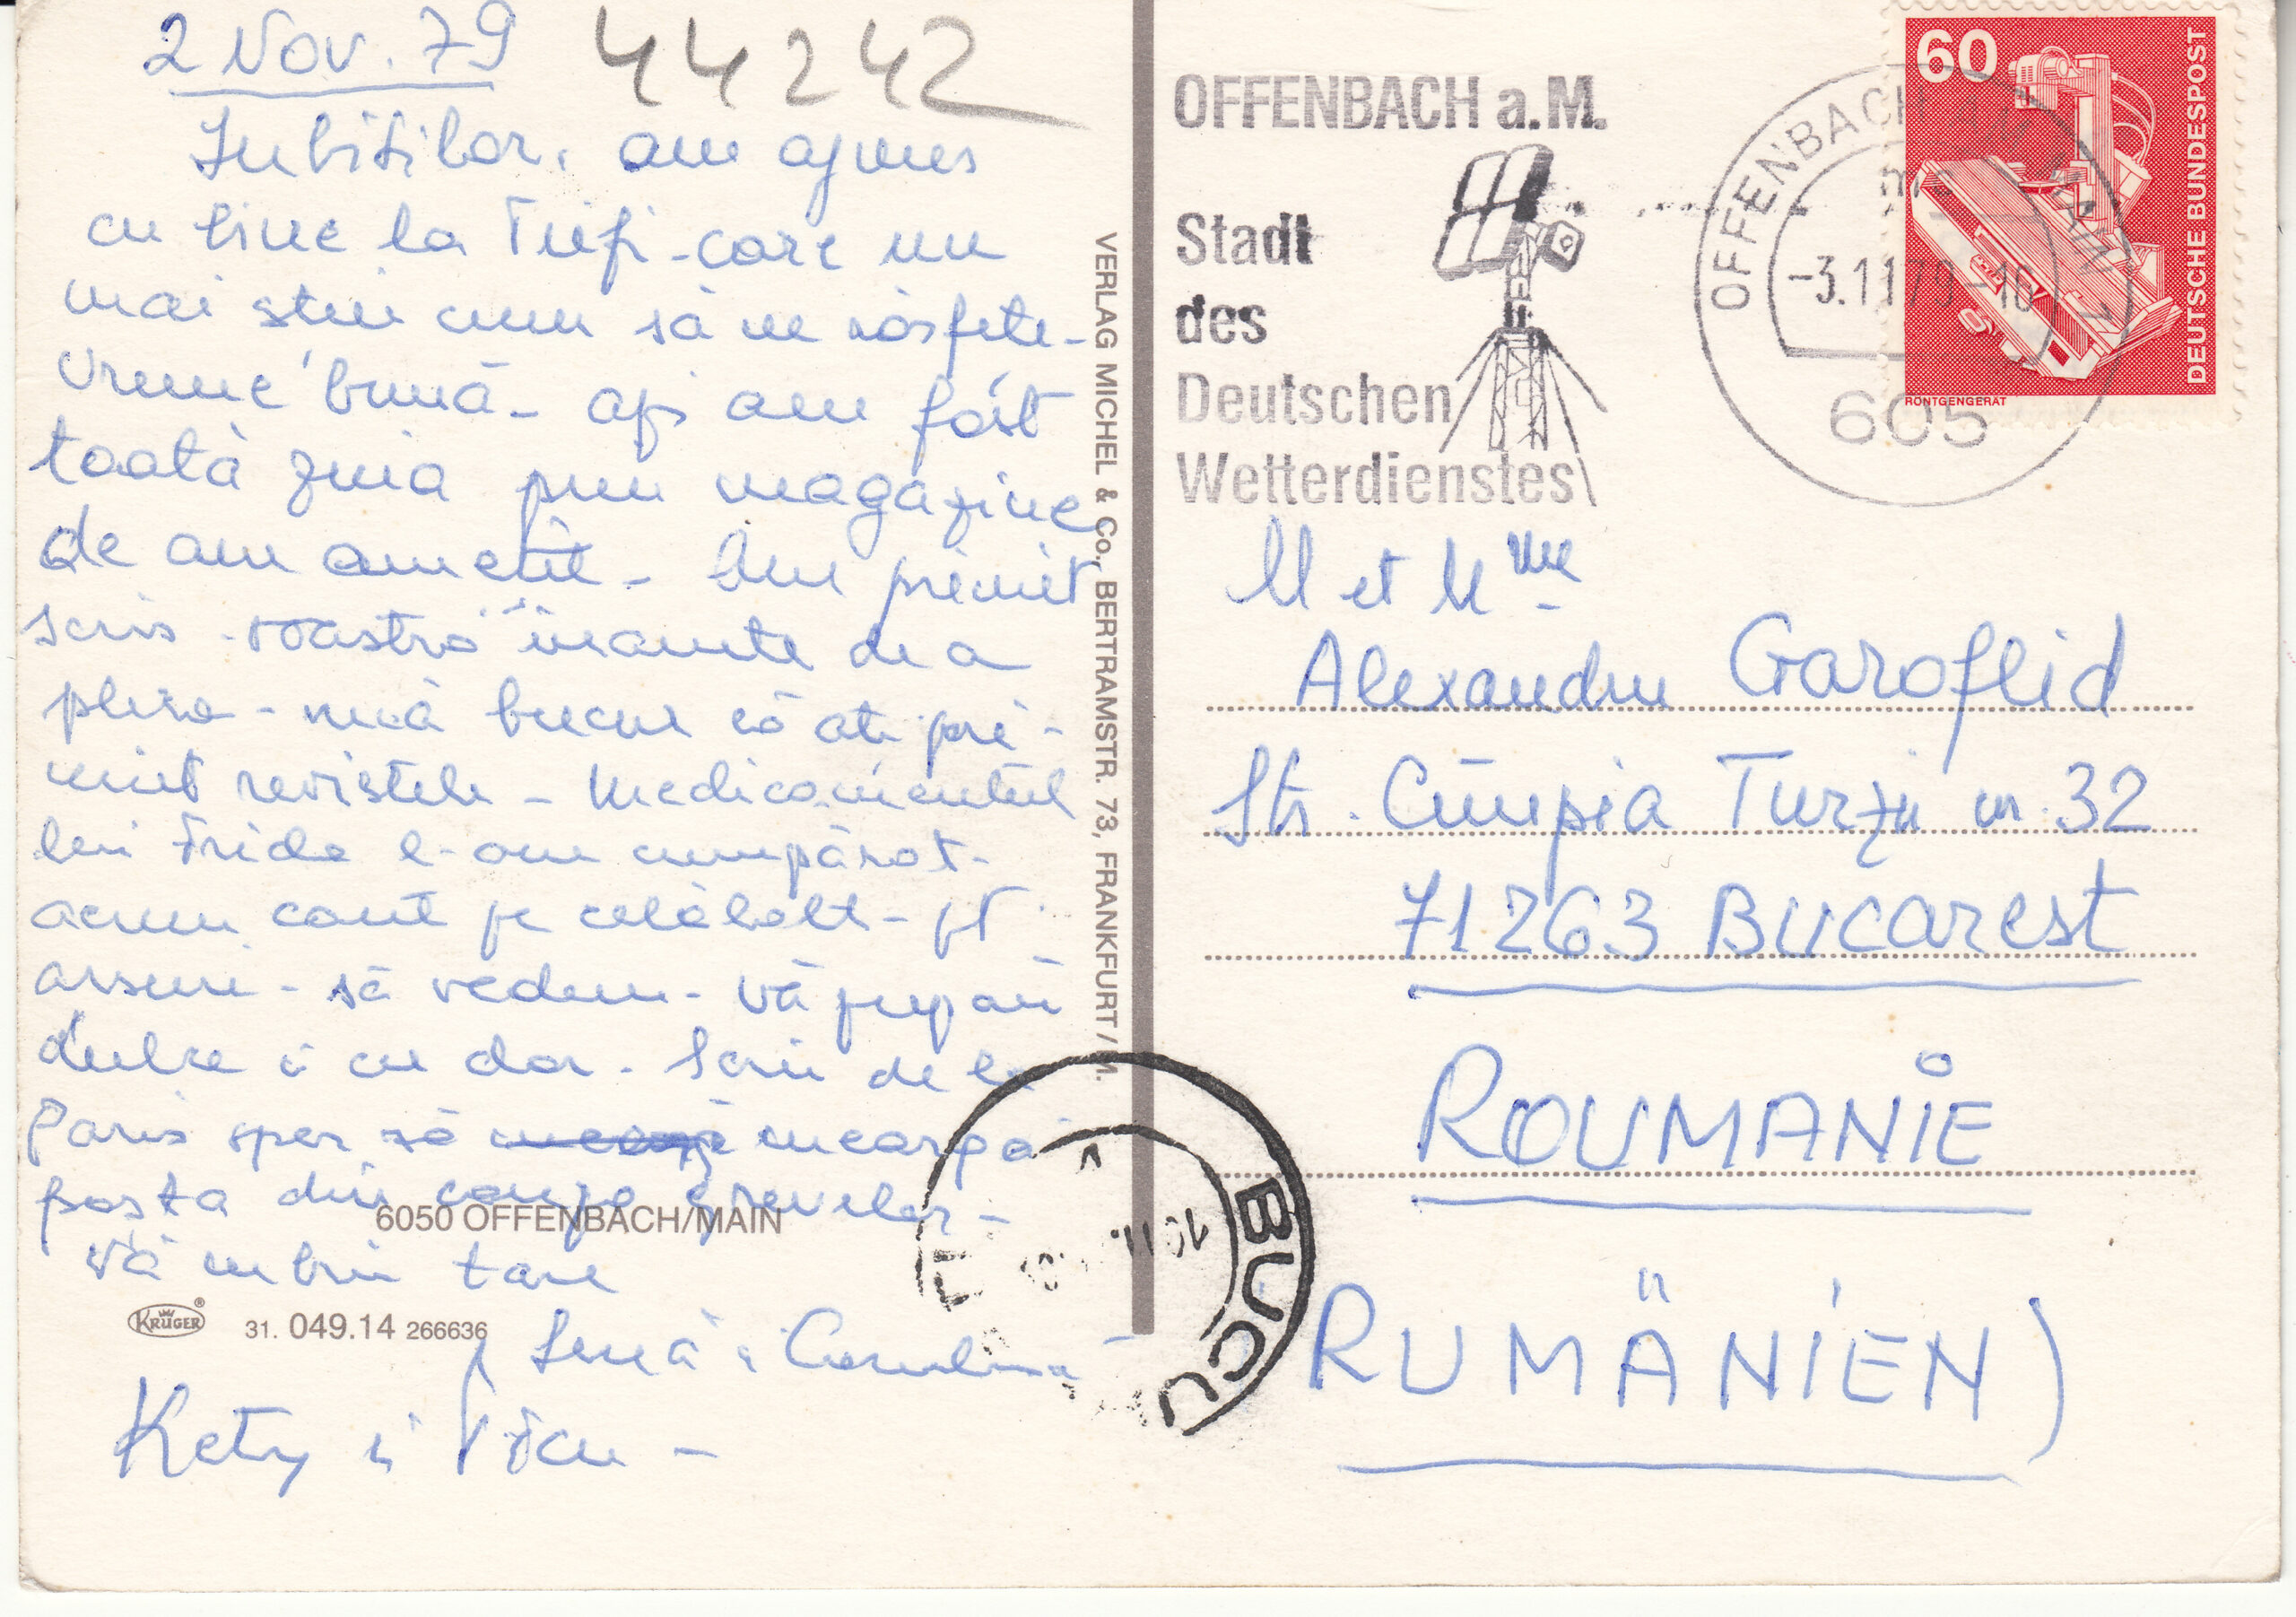 2 Nov. 79
44242
Iubiților, am ajuns
cu bine la Fifi - care nu
mai știe cum să ne răsfețe -
Vreme bună - azi am fost
toată ziua prin magazine
de am amețit - Am primit
scris. voastră înainte de a
pleca - mă bucur că ați pri-
mit revistele - Medicamentul
lui Frida l-am cumpărat -
acum caut pe celălalt - pt.
arsuri - să vedem - Vă pupăm
dulce și cu dor - Scriu de la
Paris sper să meargă
poșta din cauza grevelor -
Vă iubim tare
Kety și Vicu -
VERLAG MICHEL & Co., BERTRAMSTR. 73, FRANKFURT / M.
6050 OFFENBACH/MAIN
KRÜGER ®
31. 049.14 266636
OFFENBACH a.M.
Stadt
des
Deutschen
Wetterdienstes
OFFENBACH AM MAIN 1
-3.11.79-16
605
60
DEUTSCHE BUNDESPOST
RÖNTGENGERÄT
M et Mme
Alexandru Garoflid
Str. Cîmpia Turzii nr. 32
71263 BUCAREST
ROUMANIE
RUMÄNIEN)
BUCU